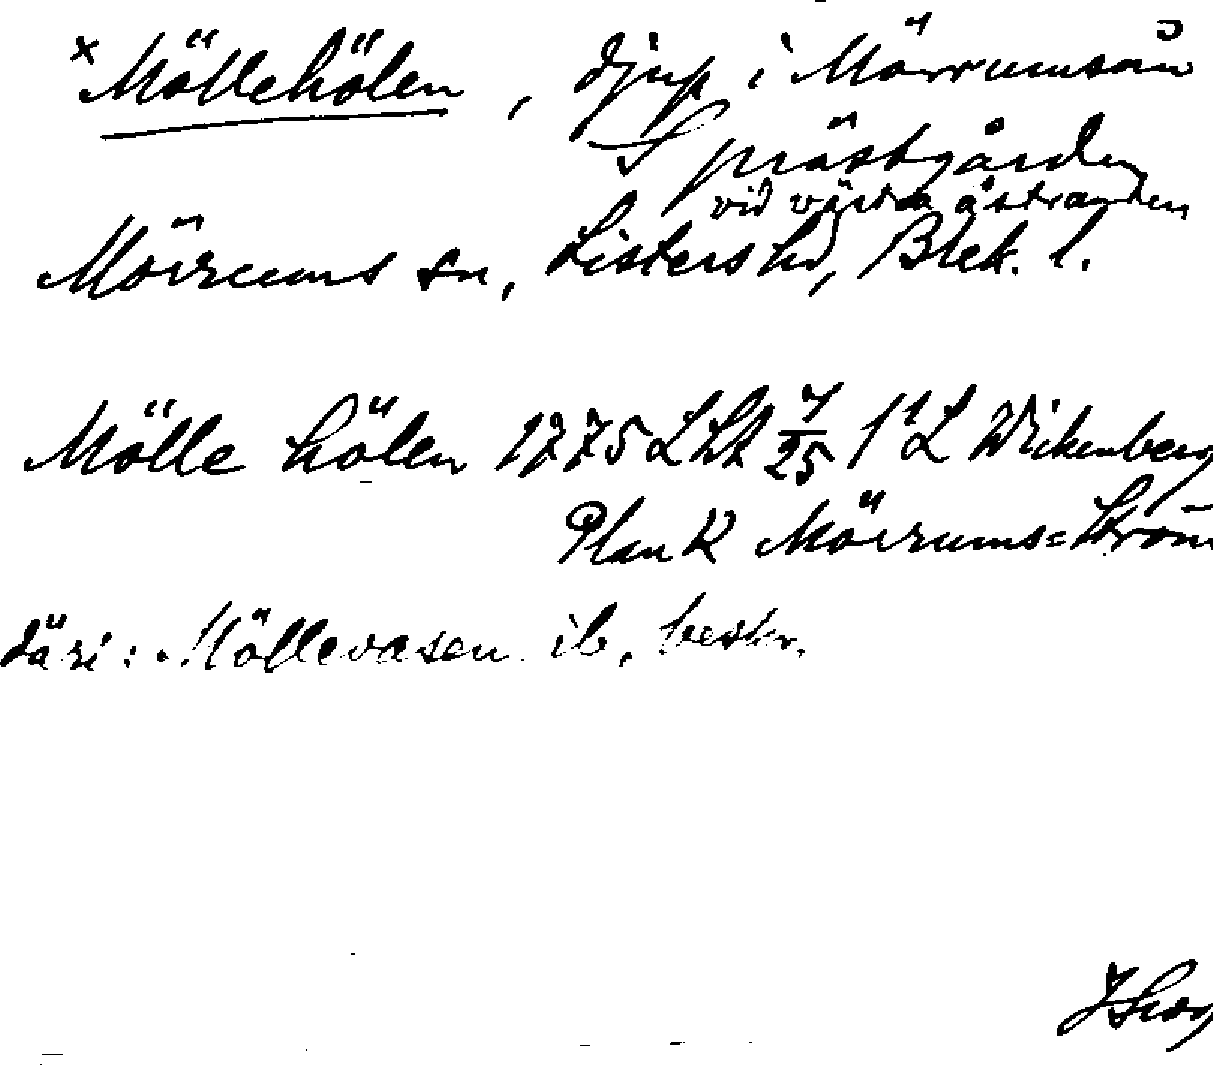 × Möllehölen, djup i Mörrumsån
S prästgården
vid västra åstranden
Mörrums sn, Listers hd, Blek. l.
Mölle hölen 1775 LSA 4/25 1:1 L Wickenberg
Plan K Mörrums=Ström
däri: Möllevasen ib, beskr.